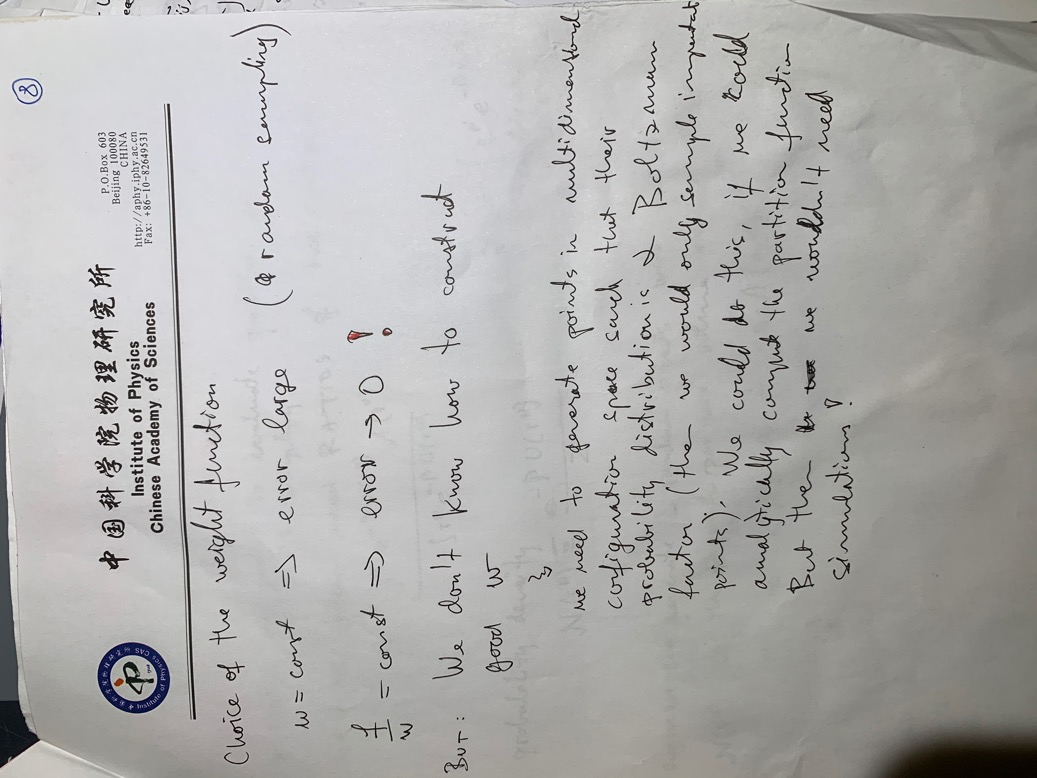 8
中国科学院物理研究所
Institute of Physics
Chinese Academy of Sciences
P.O.Box 603
Beijing 100080
CHINA
http://aphy.iphy.ac.cn
Fax: +86-10-82649531
Institute of Physics CAS
Choice of the weight function
w = const ⇒ error large (random sampling)
f/w = const ⇒ error → 0 !
But: We don't know how to construct
good w
We need to generate points in multidimensional
configuration space such that their
probability distribution is ∝ Boltzmann
factor (then we would only sample important
points). We could do this, if we could
analytically compute the partition function
But then we wouldn't need
simulations!